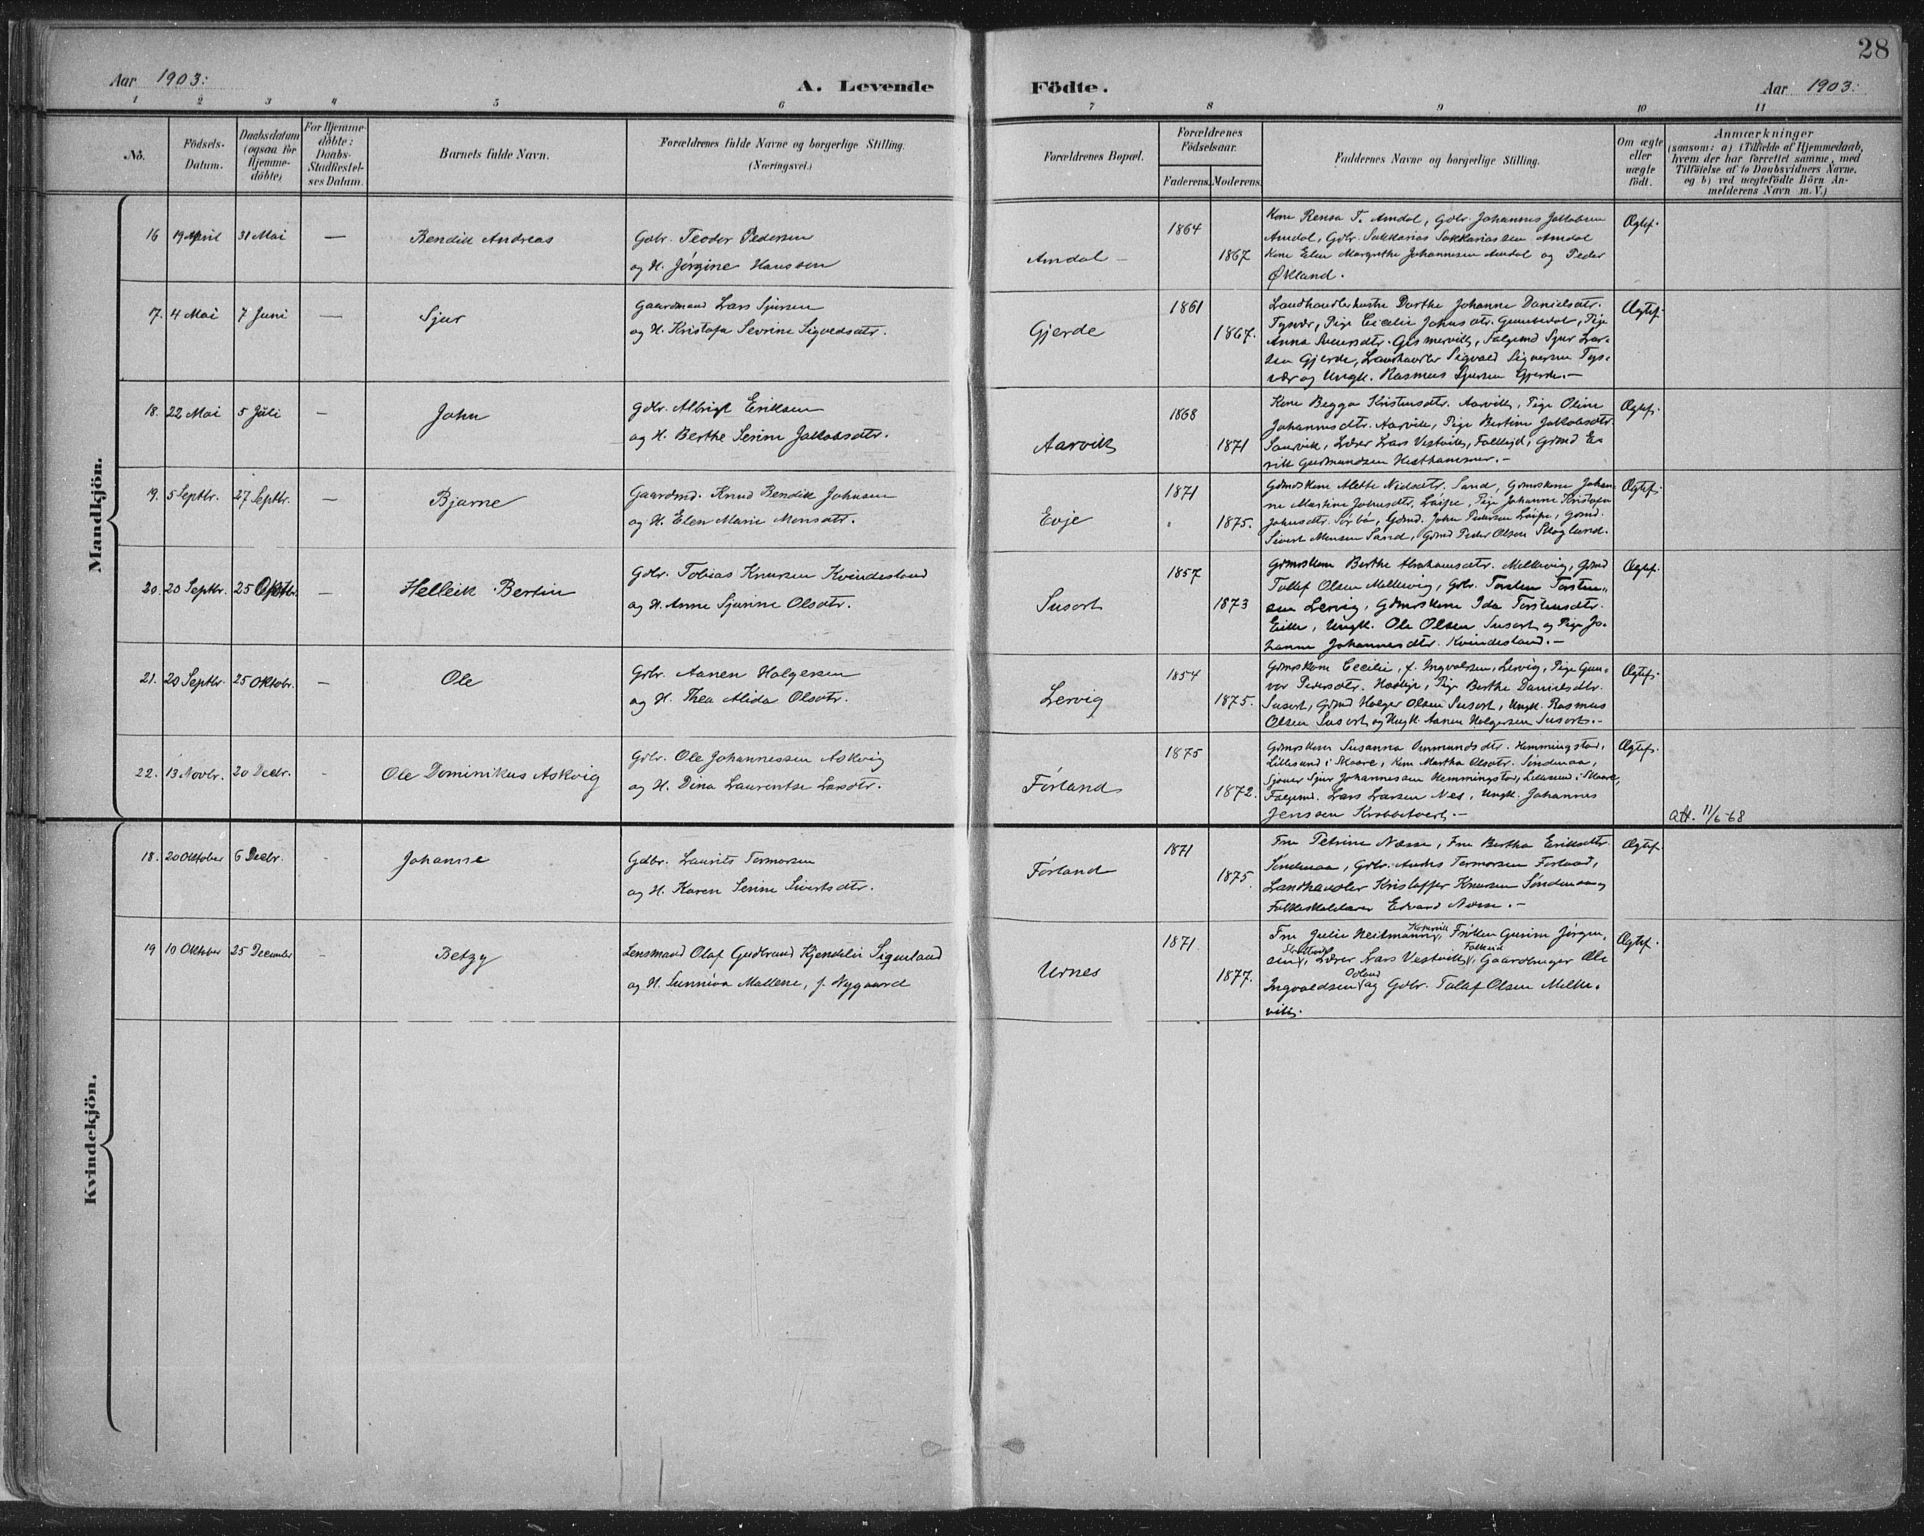 28
Aar 1903.
A. Levende
Födte.
Aar 1903.
1 2 3 4 5 6 7 8 9 10 11
Nô. Födsels-Datum. Daabsdatum (ogsaa for Hjemmedöbte) For Hjemmedöbte: Daabs-Stadfæstelses Datum. Barnets fulde Navn. Forældrenes fulde Navne og borgerlige Stilling. (Næringsvei.) Forældrenes Bopæl. Forældrenes Födselsaar. Faderens. Moderens. Faddernes Navne og borgerlige Stilling. Om ægte eller uægte födt. Anmærkninger
(saasom: a) i Tilfælde af Hjemmedaab, hvem der har forrettet samme, med Tilföielse af to Daabsvidners Navne. og b) ved uægtefödte Börn Anmelderens Navn m. V.)
Mandkjön.
16 19 April 31 Mai — Bendik Andreas
Gdbr. Teodor Pedersen
og H. Jørgine Hanssen
Amdal – 1864 1867
Kone Rensa T. Amdal, Gdbr. Johannes Jakobsen
Amdal, Gdbr. Sakkarias Sakkariassen Amdal
Kone Elen Margrethe Johannesen Amdal og Peder
Økland.
Ægtef.
17. 4 Mai 7 Juni — Sjur
Gaardmand Lars Sjursen
og H. Kristofa Sevrine Sigvedsdtr.
Gjerde 1861 1867.
Landhandlerhustru Dorthe Johanne Danielsdtr.
Tysvær, Pige Cecilie Johnsdtr. Gunnbedal, Pige
Anna Sjursdtr. Gismervik, Følgemd Sjur Larsen
Gjerde, Landhandler Sigvald Sigversen Tysvær
og Ungk. Rasmus Sjursen Gjerde. –
Ægtef.
18. 22 Mai 5 Juli – John
Gdbr. Albrigt Eriksen
og H. Berthe Serine Jakobsdtr.
Aarvik 1868 1871
Kone Begga Kristensdtr. Aarvik, Pige Oline
Johannesdtr. Aarvik, Pige Bertine Jakobsdtr.
Sandvik, Lærer Lars Vestvik, Falkeid, Grmd Erik
Gudmundsen Hesthammer. –
Ægtef.
19. 5 Septbr. 27 Septbr. — Bjarne
Gaardmd. Knud Bendik Johnsen
og H. Elen Marie Monsdtr.
Evje 1871 1875.
Grmdskone Alette Nilsdtr. Sand, Grmdskone Johanne
Martine Johnsdtr. Laipe, Pige Johanne Kristofa
Johnsdtr. Sørbø, Grmd. John Pedersen Laipe, Grmd.
Sivert Monsen Sand, Grmd Peder Olsen Skogland.
Ægtef.
20. 20 Septbr. 25 Oktbr. – Helleik Bertin
Gdbr. Tobias Knutsen Kvindesland
og H. Anne Sjurine Olsdtr.
Susort 1857 1873
Grmdskone Berthe Abrahamsdtr. Melkevig, Grmd
Tollef Olsen Melkevig, Gdbr. Torsten Torstensen
Lervig, Grmdskone Ida Torstensdtr.
Eike, Ungk. Ole Olsen Susort og Pige Johanne
Johannesdtr. Kvindesland. –
Ægtef.
21. 20 Septbr. 25 Oktobr. – Ole
Gdbr. Aanen Holgersen
og H. Thea Alida Olsdtr.
Lervig 1854 1875.
Grmdskone Cecilie, f. Ingvalsen, Lervig, Pige Gunvor
Pedersdtr. Haskje, Pige Berthe Danielsdtr.
Susort, Grmd Holger Olsen Susort, Ungk. Rasmus
Olsen Susort og Ungk. Aanen Holgersen Susort. –
Ægtef.
22. 13 Novbr. 20 Decbr. – Ole Dominikus Askvig
Gdbr. Ole Johannessen Askvig
og H. Dina Laurentse Larsdtr.
Førland 1875 1872.
Grmdskone Susanna Ommundsdtr. Hemmingstad,
Lillesund i Skaare, Kone Martha Olsdtr. Søndenaa,
Sjøuer Sjur Johannessen Hemmingstad, Lillesund i Skaare,
Følgemd. Lars Larsen Nes, Ungk. Johannes
Jenssen Krabbetveit. –
Ægtef. Att. 11/6-68
Kvindekjön.
18. 20 Oktober 6 Decbr. – Johanne
Gdbr. Laurits Tormorsen
og H. Karen Serine Sivertsdtr.
Førland 1871 1875.
Fru Petrine Næsse, Fru Bertha Eriksdtr.
Søndenaa, Gdbr. Anders Tormorsen Førland,
Landhandler Kristoffer Knutsen Søndenaa og
Folkeskolelærer Edvard Næsse. –
Ægtef.
19 10 Oktober 25 December – Betzy
Lensmand Olaf Gudbrand Kjendelie Sigurland
og H. Sunniva Mallene, f. Nygaard
Urnes 1871 1877.
Fru Julie Heilmann, Kopervik Frøken Gurine Jørgensen,
Lærer Lars Vestvik, Falkeid Gaardbruger Ole
Ingvaldsen Odland og Gdbr. Tollef Olsen Melkevik.
Ægtef.